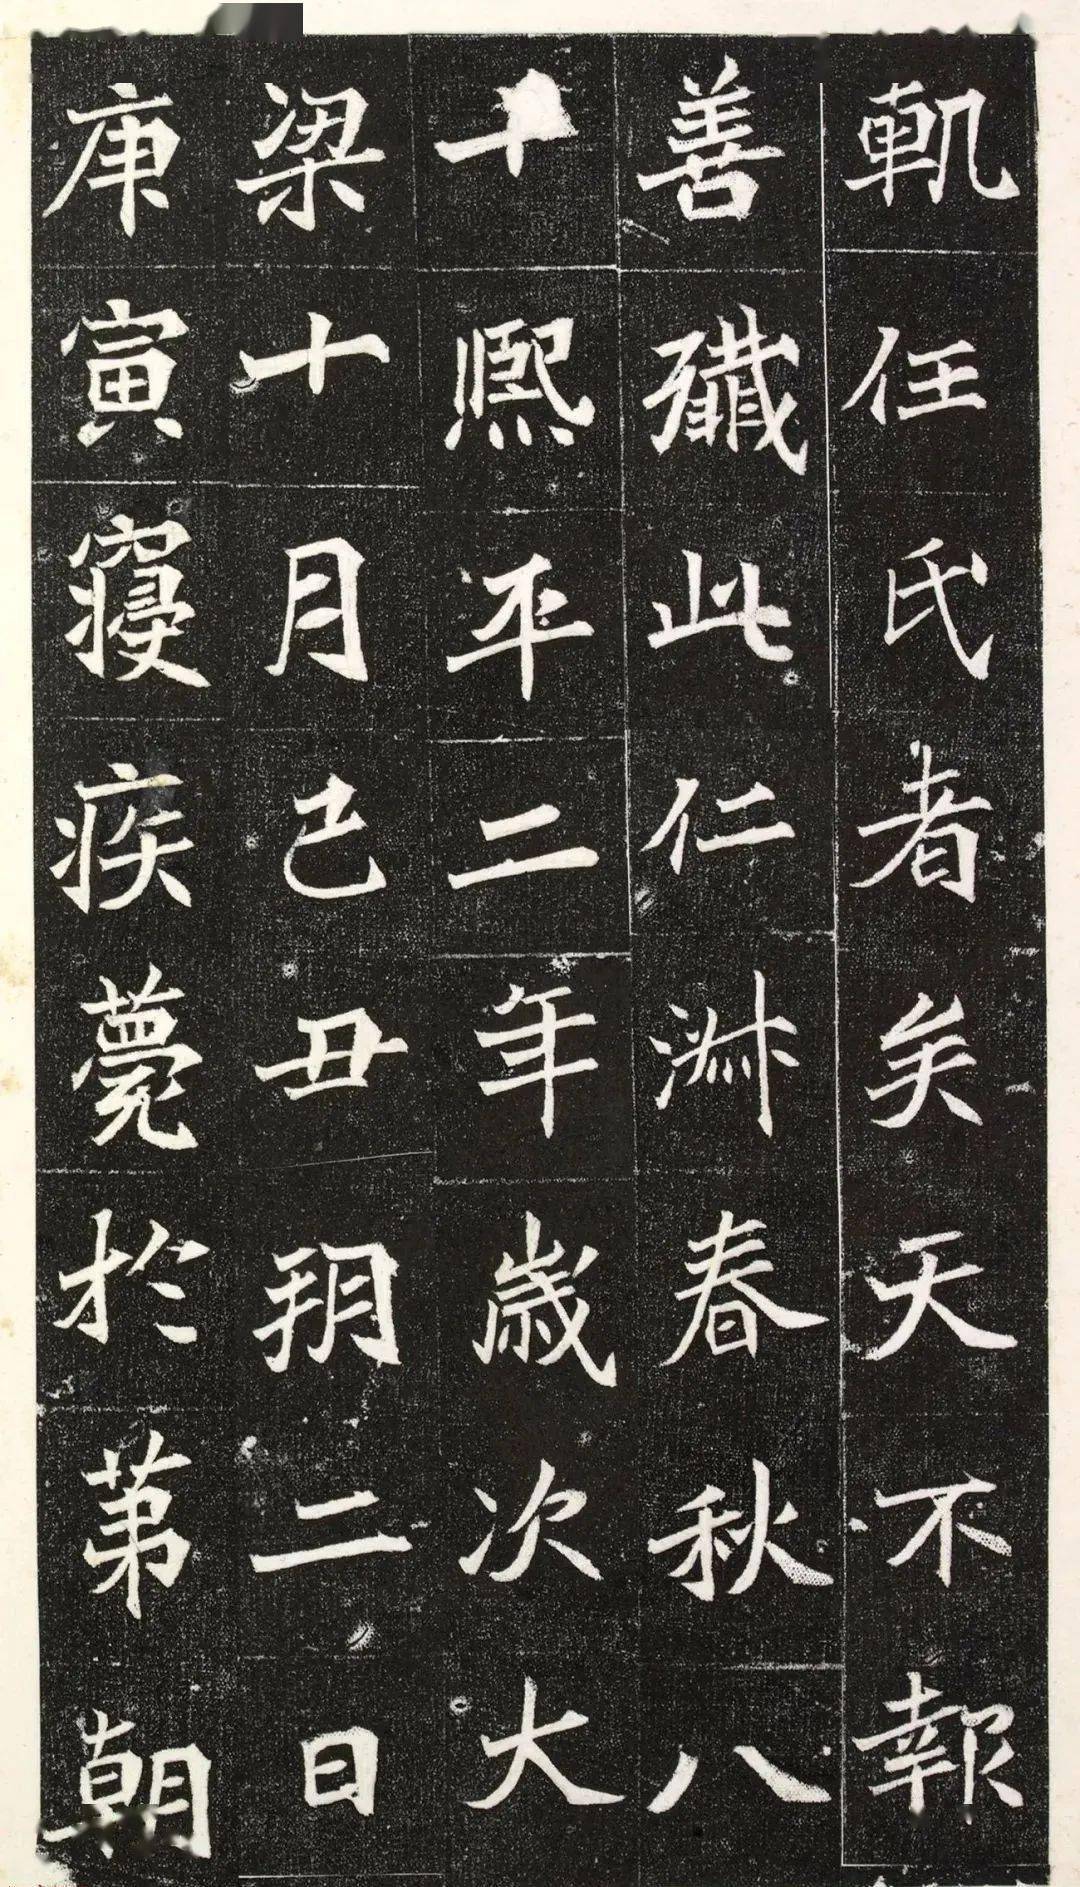 軌任氏者矣天不報
善殲此仁淑春秋八
十熙平二年歲次大
梁十月己丑朔二日
庚寅寢疾薨於第朝